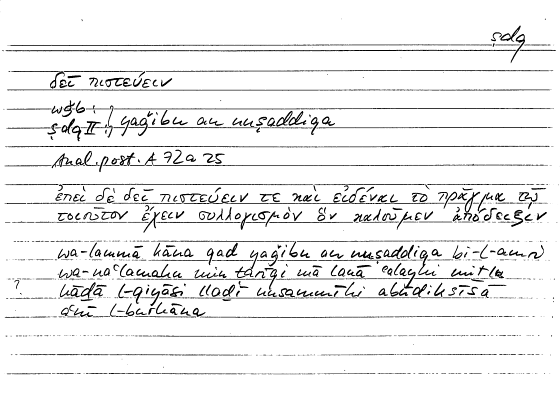 ṣdq
δεῖ πιστεύειν
wǧb :
ṣdq II : } yaǧibu an nuṣaddiqa
Anal. post. A 72a25
ἐπεὶ δὲ δεῖ πιστεύειν τε καὶ εἰδέναι τὸ πρᾶγμα τῷ
τοιοῦτον ἔχειν συλλογισμὸν ὃν καλοῦμεν ἀπόδειξιν
wa-lammā kāna qad yaǧibu an nuṣaddiqa bi-l-amri
wa-naʿlamahu min ṭarīqi mā lanā ʿalayhi miṯla
? hāḏā l-qiyāsi llaḏī nusammīhi abūdīksīsa
aʿnī l-burhāna